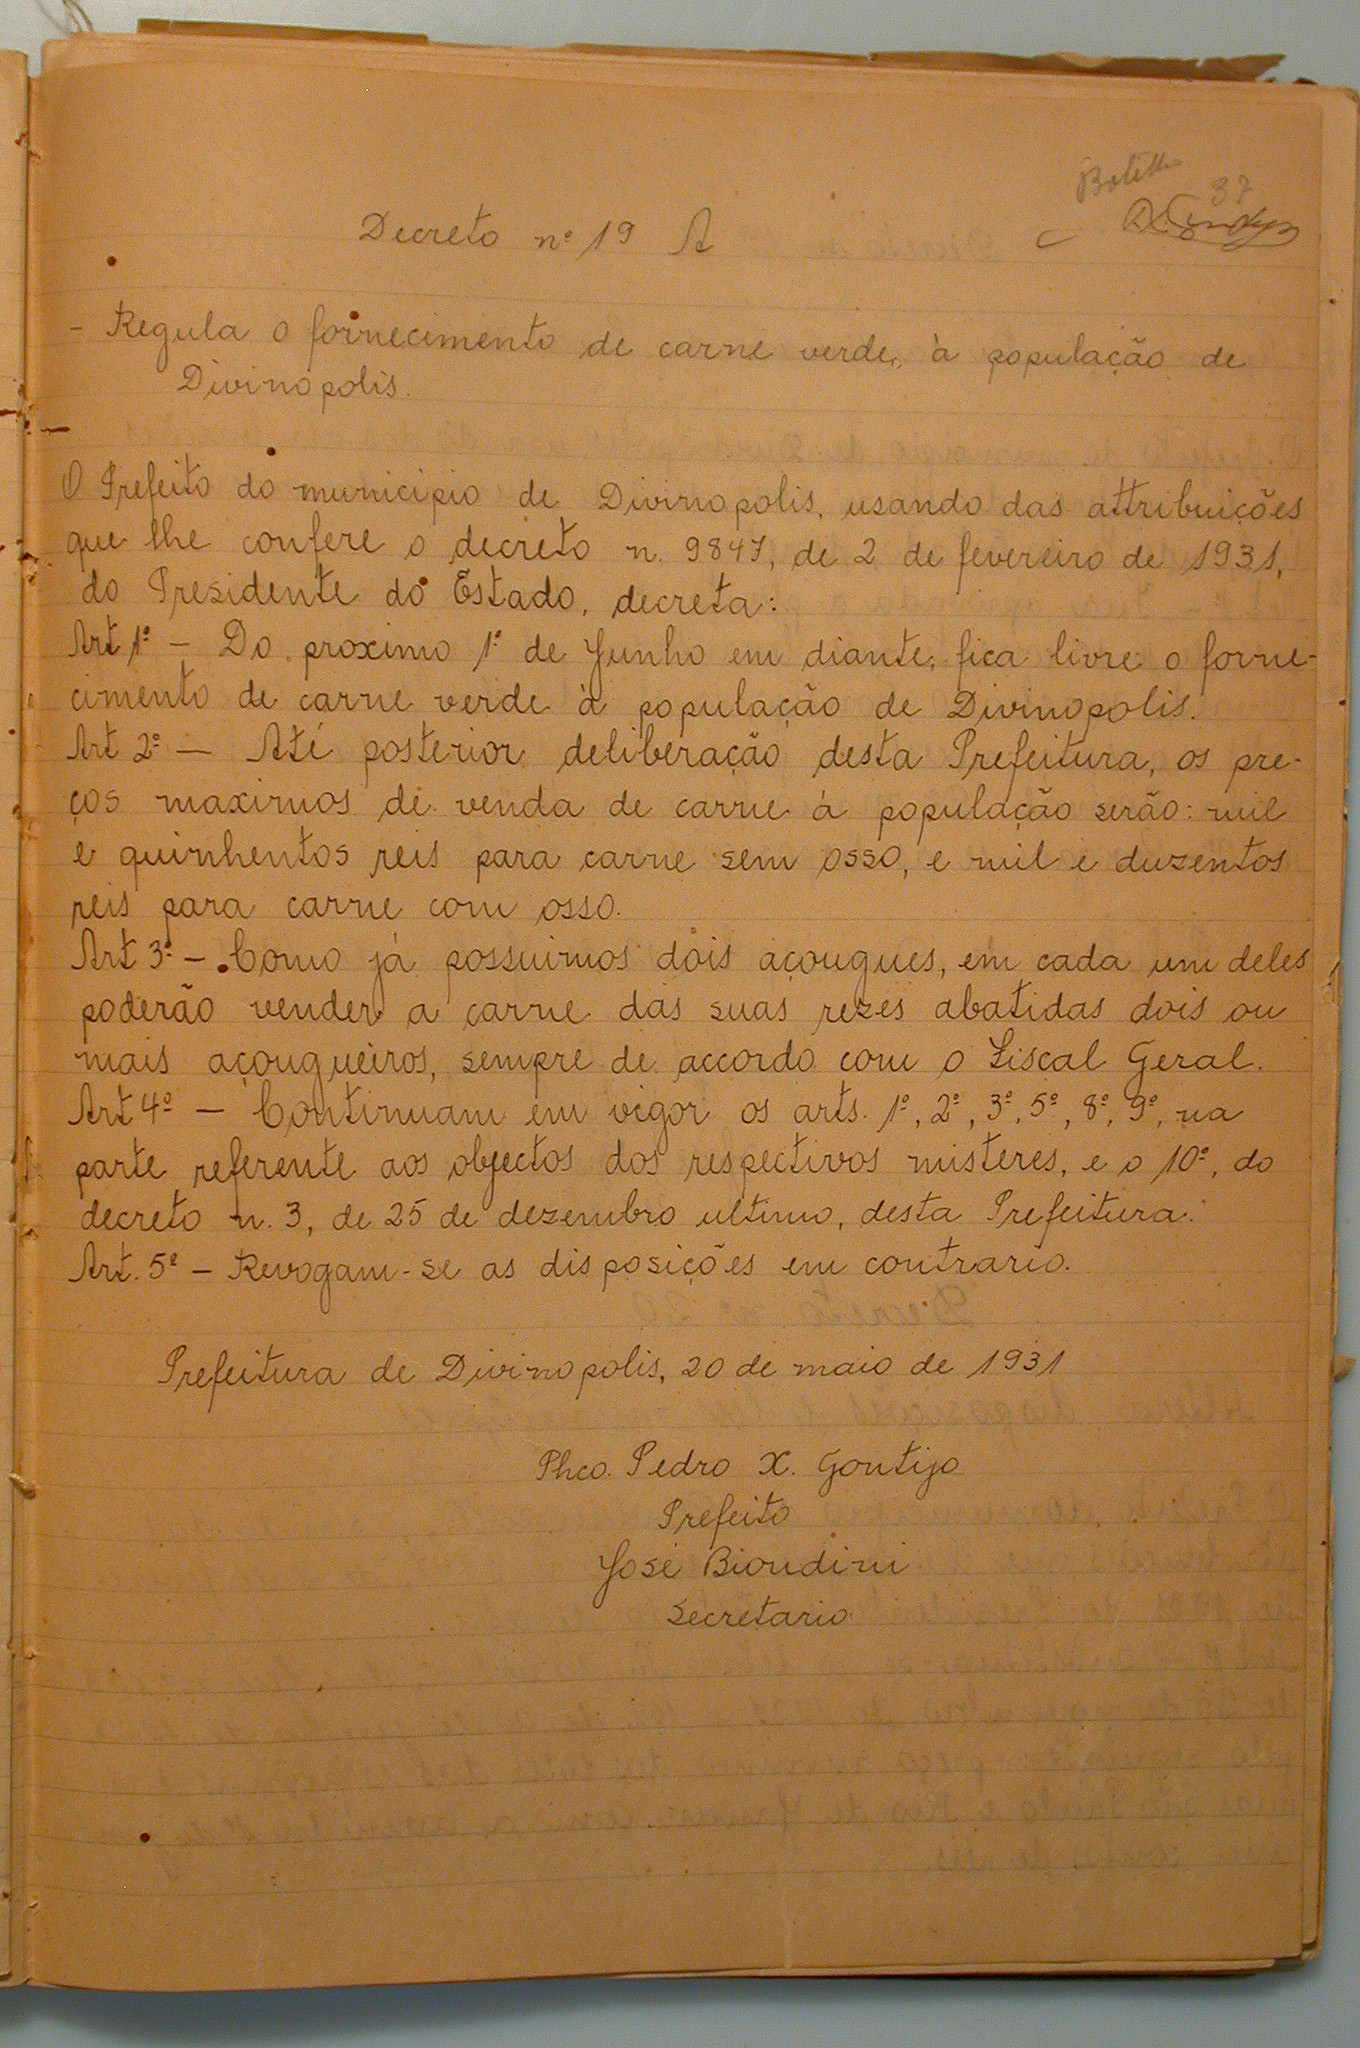 37
Decreto nº 19 A
- Regula o fornecimento de carne verde, à população de
Divinopolis.
O Prefeito do municipio de Divinopolis, usando das attribuições
que lhe confere o decreto n. 9847, de 2 de fevereiro de 1931,
do Presidente do Estado, decreta:
Art 1º - Do proximo 1º de Junho em diante, fica livre o forne-
cimento de carne verde à população de Divinopolis.
Art 2º - Até posterior deliberação desta Prefeitura, os pre-
ços maximos de venda de carne á população serão: mil
e quinhentos reis para carne sem osso, e mil e duzentos
reis para carne com osso.
Art 3º - Como já possuimos dois açougues, em cada um deles
poderão vender a carne das suas rezes abatidas dois ou
mais açougueiros, sempre de accordo com o Fiscal Geral.
Art 4º - Continuam em vigor os arts. 1º, 2º, 3º, 5º, 8º, 9º, na
parte referente aos objectos dos respectivos misteres, e o 10º, do
decreto n. 3, de 25 de dezembro ultimo, desta Prefeitura.
Art. 5º - Revogam-se as disposições em contrario.
Prefeitura de Divinopolis, 20 de maio de 1931
Phco. Pedro X. Gontijo
Prefeito
José Biondini
Secretario